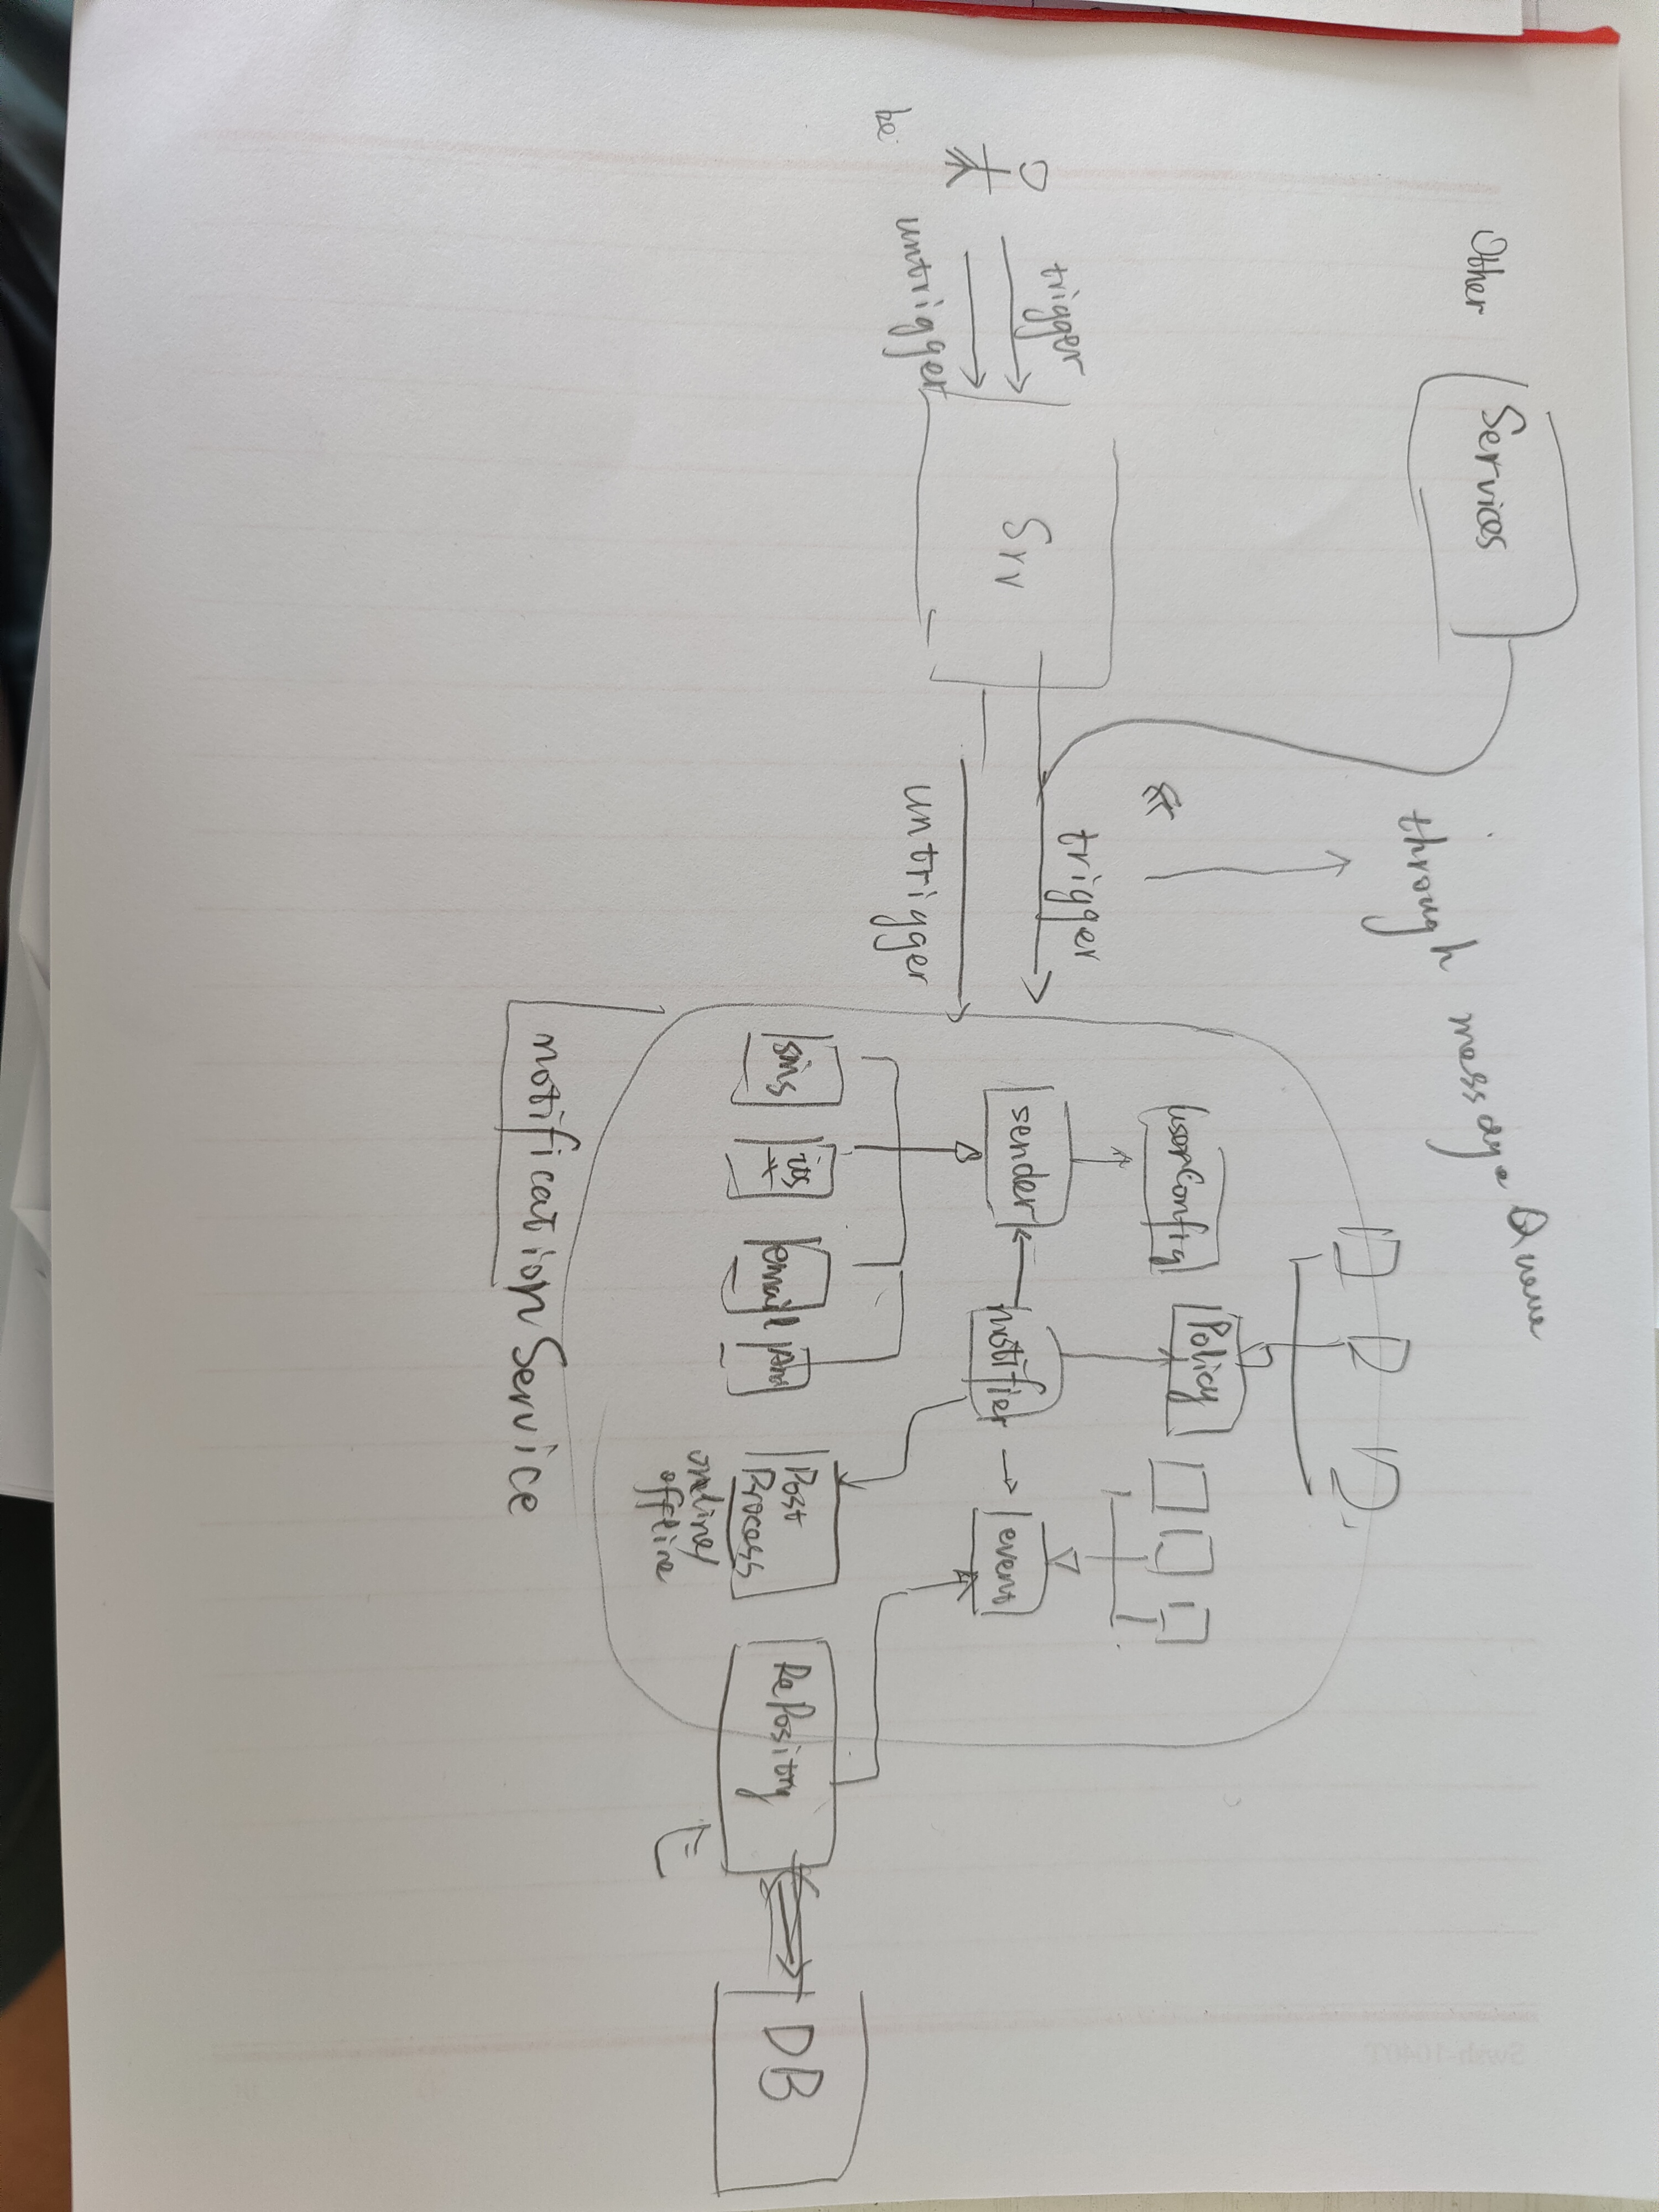 Other
Services
through message Queue
trigger
untrigger
Srv
trigger
untrigger
be
userConfig
Policy
sender
notifier
event
sms
email
Post
Process
online/
offline
RePository
DB
notification Service